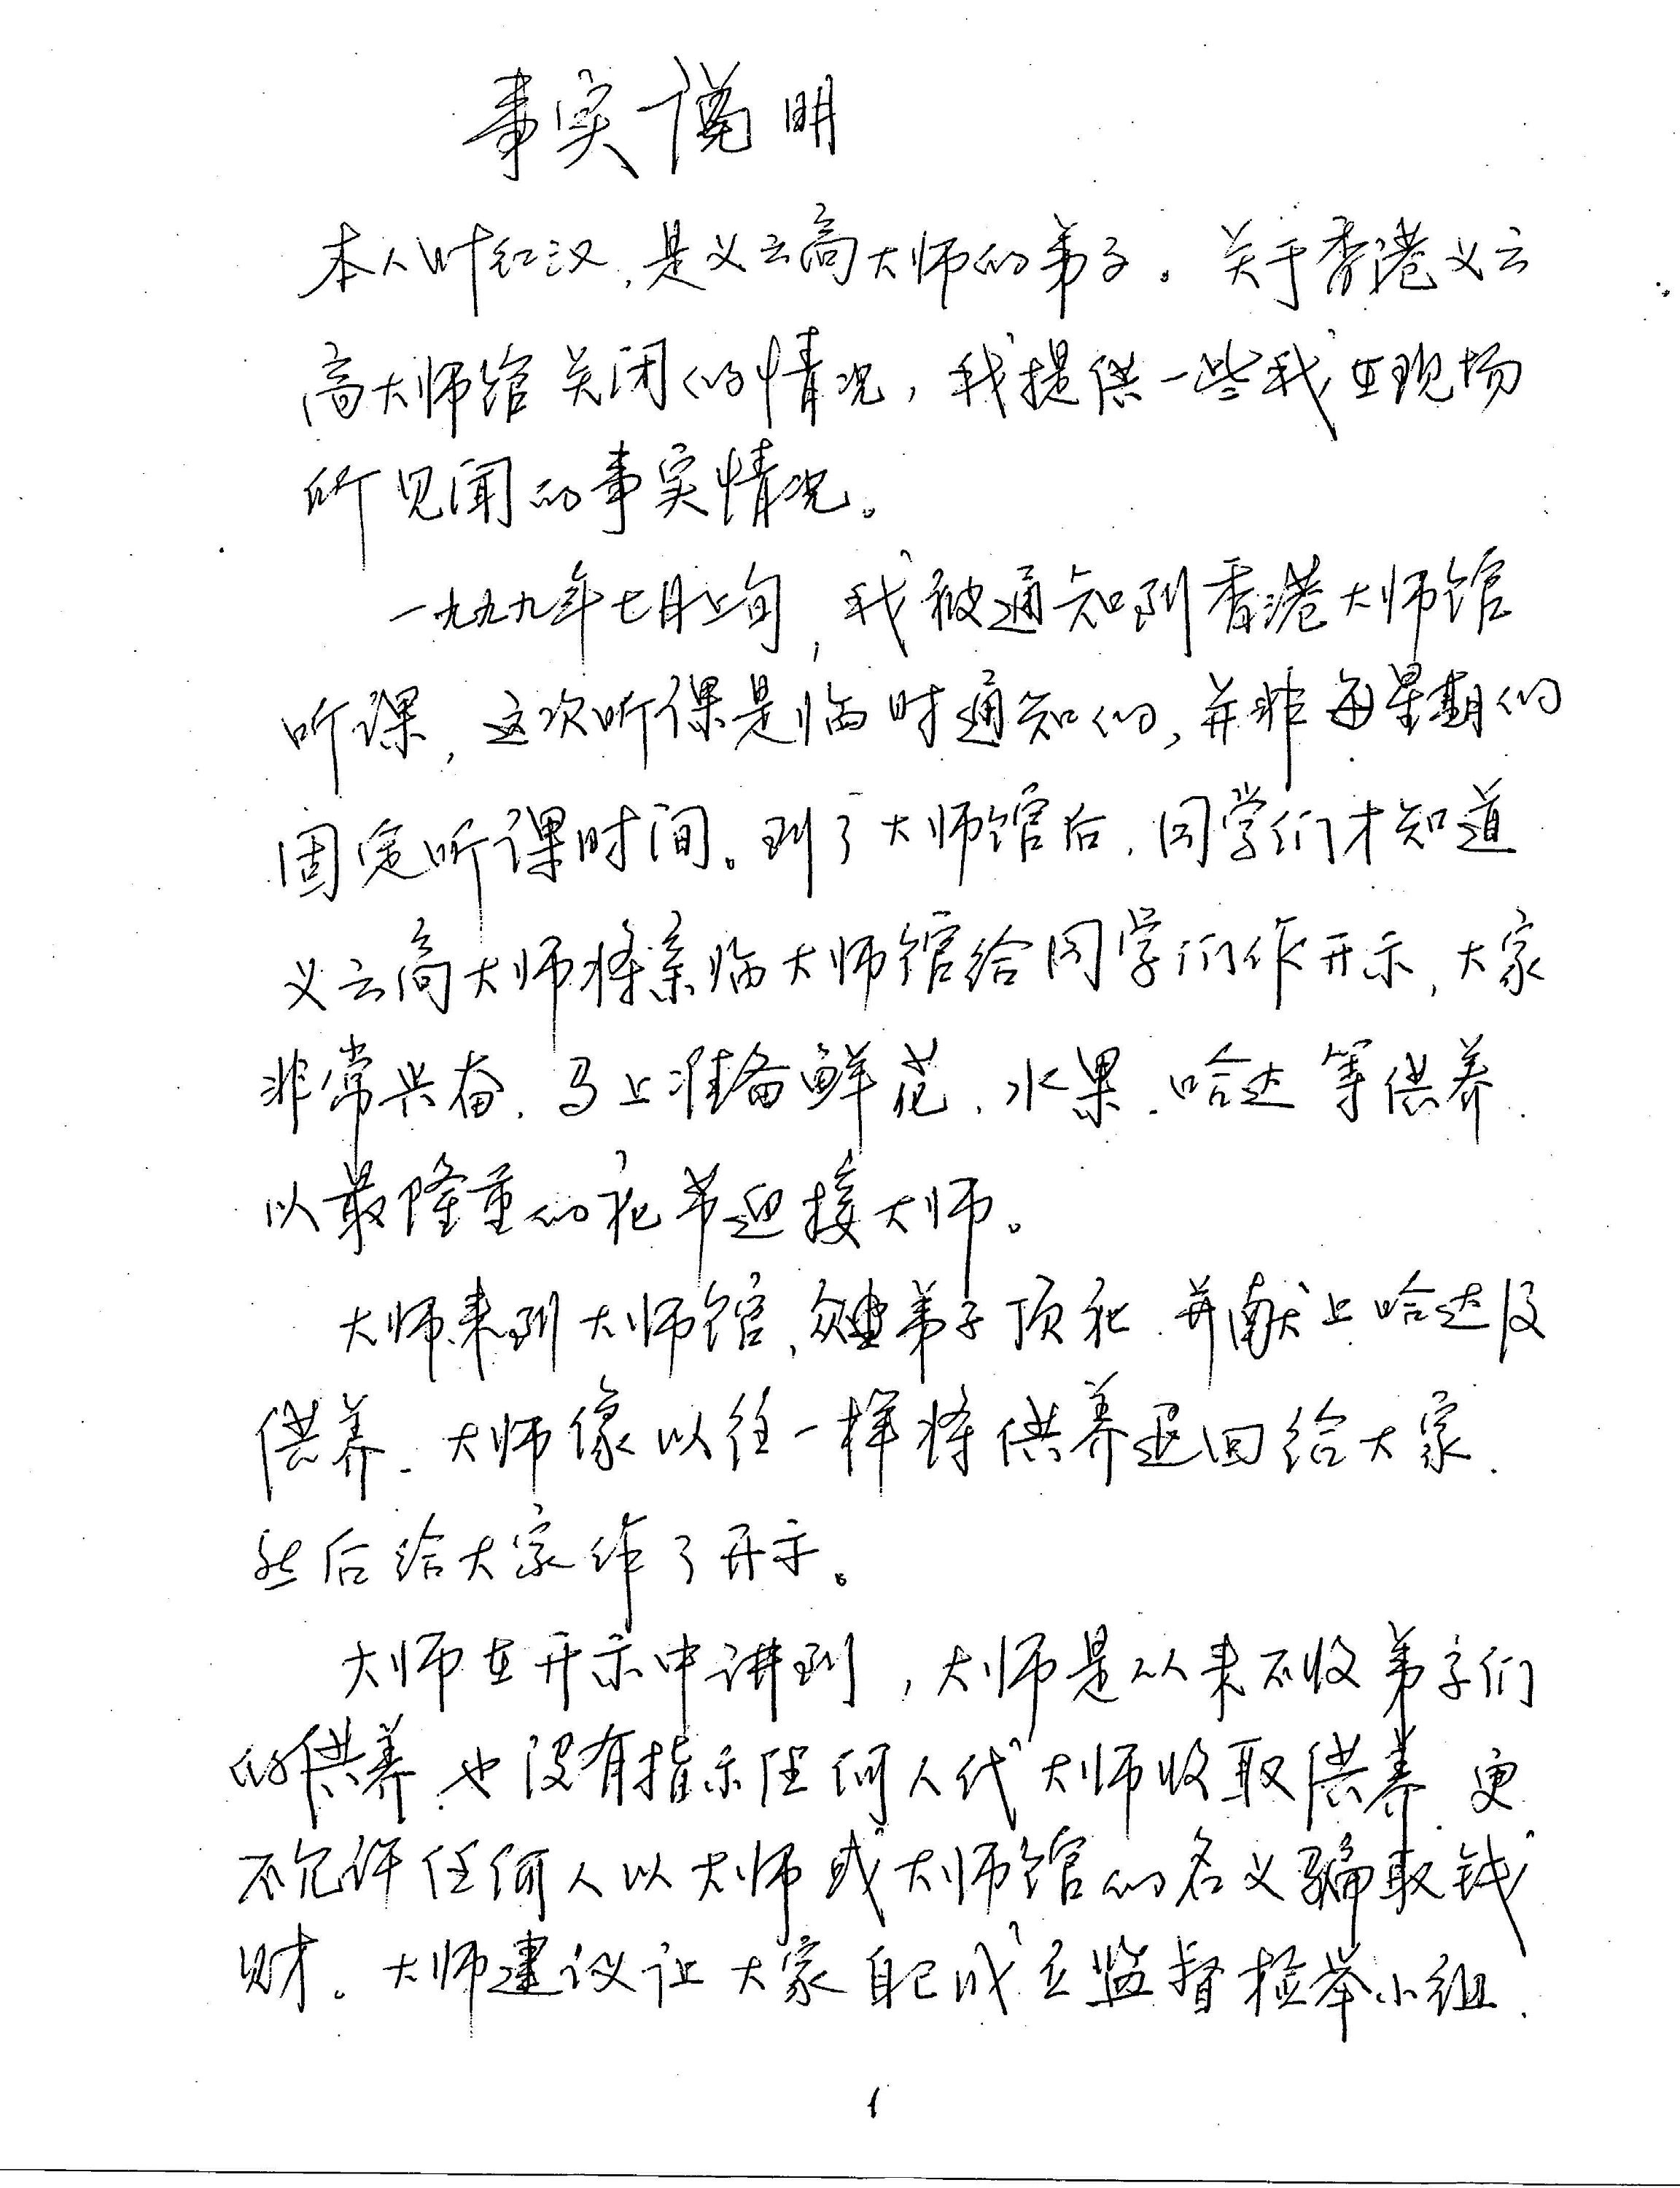 事实说明
本人叶红汉，是义云高大师的弟子。关于香港义云
高大师馆关闭的情况，我提供一些我在现场
所见闻的事实情况。
一九九九年七月上旬，我被通知到香港大师馆
听课，这次听课是临时通知的，并非每星期的
固定听课时间。到了大师馆后，同学们才知道
义云高大师将亲临大师馆给同学们作开示，大家
非常兴奋，马上准备鲜花、水果、哈达等供养，
以最隆重的礼节迎接大师。
大师来到大师馆，众弟子顶礼，并献上哈达及
供养，大师像以往一样将供养退回给大家，
然后给大家作了开示。
大师在开示中讲到，大师是从来不收弟子们
的供养，也没有指示任何人代大师收取供养，更
不允许任何人以大师或大师馆的名义骗取钱
财。大师建议让大家自己成立监督检举小组，
1